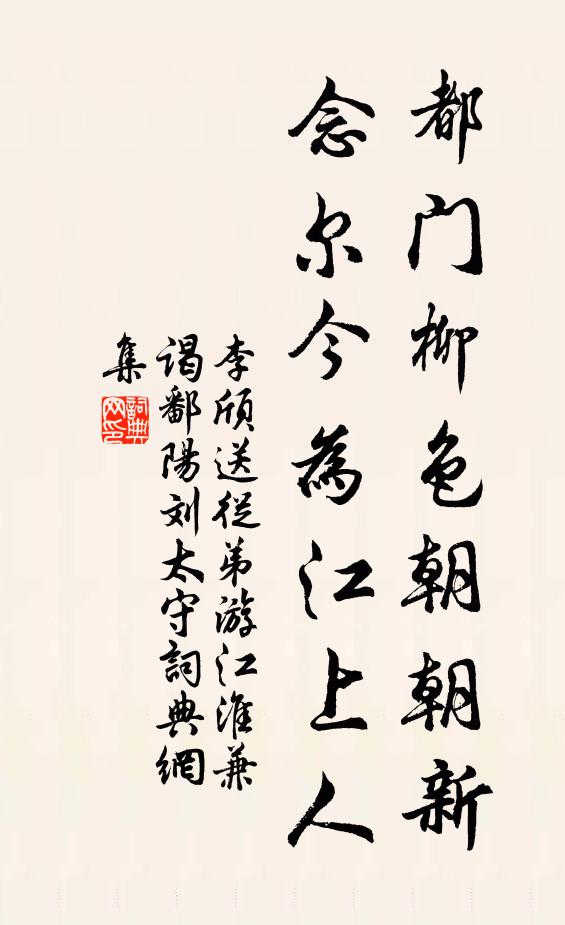 都门柳色朝朝新
念尔今為江上人
李颀送從弟游江淮兼
谒鄱陽刘太守詞典網
集
詞典
网印